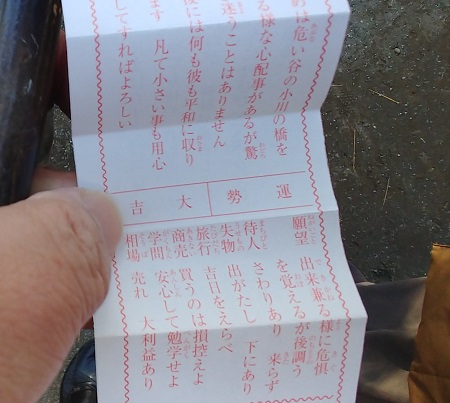 めは危い谷の小川の橋を
る様な心配事があるが驚
迷うことはありません
には何も彼も平和に収り
ます 凡て小さい事も用心
してすればよろしい
運勢 大吉
願望 出来兼る様に危惧
を覚えるが後調う
待人 さわりあり 来らず
失物 出がたし 下にあり
旅行 吉日をえらべ
商売 買うのは損控えよ
学問 安心して勉学せよ
相場 売れ 大利益あり